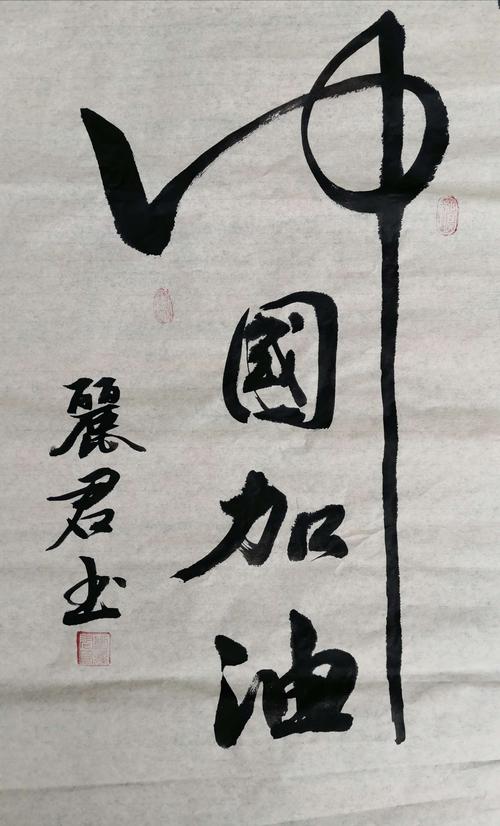 中國加油
麗君书